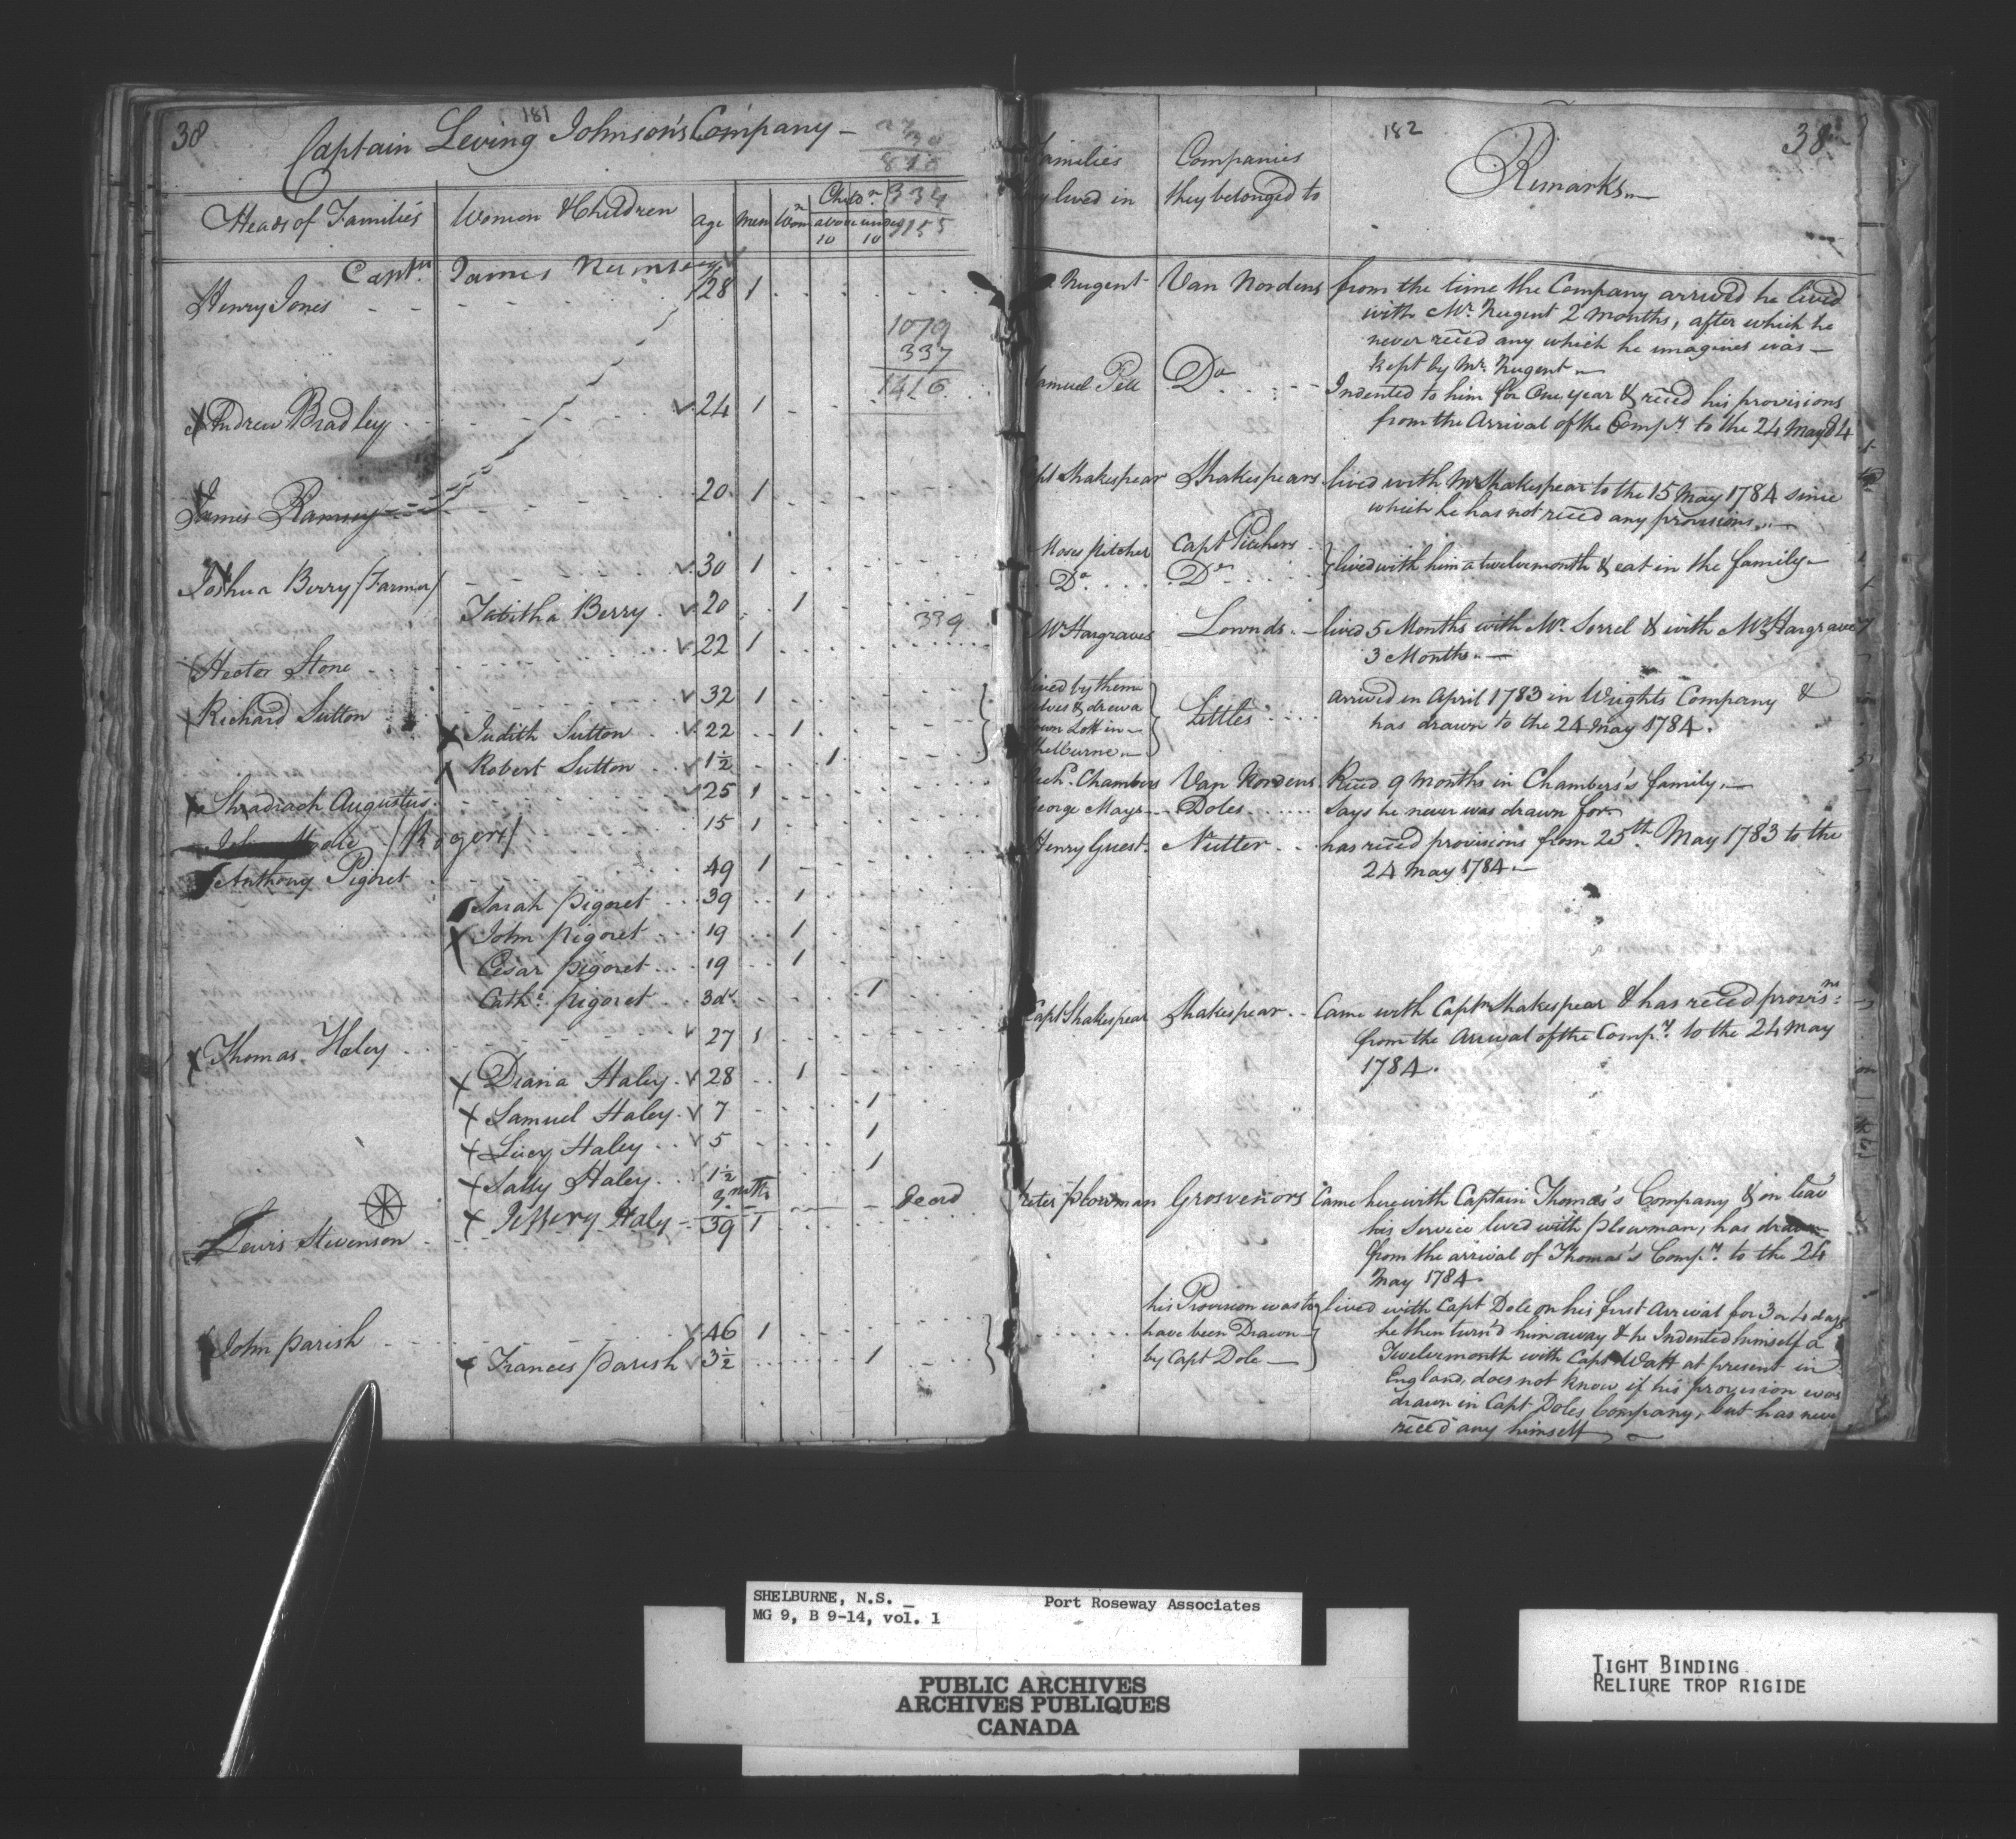 38
181
Captain Leving Johnson's Company —
30
816
334
1155
Heads of Families
Women & Children
age
Men
Wom.n
Child.n
above 10
under 10
Capt.n James
Henry Jones - - 28 1
1079
337
1416
Andrew Bradley 24 1
James Ramsey 20 1
Joshua Berry /Farmer/ 30 1
Tabitha Berry 20 1
339
Hector Stone 22 1
Richard Sutton 32 1
Judith Sutton 22 1
Robert Sutton 1½ 1
Shadrach Augustus 25 1
/Rogers/ 15 1
Anthony Pigoret 49 1
Sarah Pigoret 39 1
John Pigoret 19 1
Cesar Pigoret 19 1
Cath.e Pigoret 3d.s 1
Thomas Haley 27 1
Diana Haley 28 1
Samuel Haley 7 1
Lucy Haley 5 1
Sally Haley 1½ 1
Jeffery Haly 3 mths dead
Lewis Stevenson 39 1
John Parish 46 1
Frances Parish 3½ 1
182
38
Families
they lived in
Companies
they belonged to
Remarks
Nugent Van Nordens from the time the Company arrived he lived
with Mr. Nugent 2 Months, after which he
never recd any which he imagines was —
kept by Mr. Nugent —
Samuel Pell Do Indented to him for One year & recd his provisions
from the Arrival of the Comp.y to the 24 May 84
Capt Shakespear Shakespears lived with Mr Shakespear to the 15 May 1784 since
which he has not recd any provisions —
Moses Pitcher Capt Pitchers
Do. Do } lived with him a twelvemonth & eat in the family
Mr Hargraves Lownds — lived 5 Months with Mr. Sorrel & with Mr. Hargraves
3 Months. —
lived by them
selves & drew a
Town Lott in
Shelburne
Littles
arrived in April 1783 in Wrights Company &
has drawn to the 24 May 1784.
Rich.d Chambers Van Nordens Recd 9 Months in Chambers's family. —
George Mays Doles Says he never was drawn for
Henry Guest Nutter has recd provisions from 25th May 1783 to the
24 May 1784 —
Capt Shakespear Shakespear Came with Capt.n Shakespear & has recd provis.ns
from the Arrival of the Comp.y to the 24 May
1784.
Peter Plowman Grosvenors Came here with Captain Thomas's Company & on leav
his Service lived with Plowman, has drawn
from the arrival of Thomas's Comp.y to the 24
May 1784.
his Provision was to
have been Drawn
by Capt Dole —
lived with Capt Dole on his first Arrival for 3 or 4 days
he then turn'd him away & he Indented himself a
Twelvemonth with Capt Watt at present in
England, does not know if his provision was
drawn in Capt Doles Company, but has never
recd any himself —
SHELBURNE, N.S. _ Port Roseway Associates
MG 9, B 9-14, vol. 1
PUBLIC ARCHIVES
ARCHIVES PUBLIQUES
CANADA
TIGHT BINDING
RELIURE TROP RIGIDE